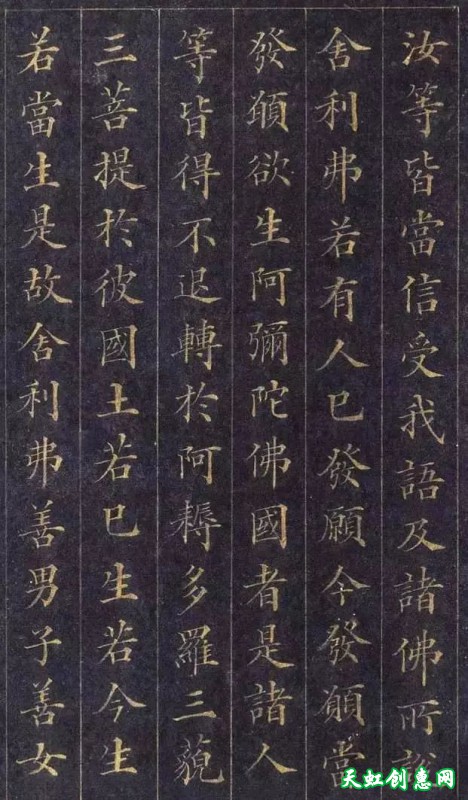 汝等皆當信受我語及諸佛所說
舍利弗若有人已發願今發願當
發願欲生阿彌陀佛國者是諸人
等皆得不退轉於阿耨多羅三藐
三菩提於彼國土若已生若今生
若當生是故舍利弗善男子善女
天虹创惠网